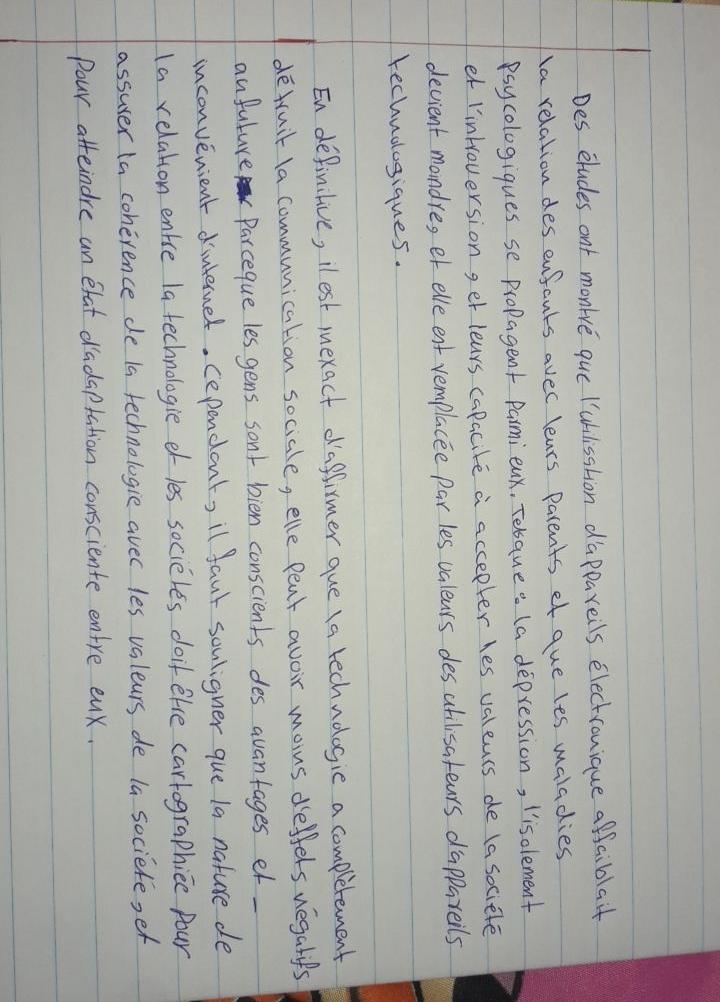 Des études ont montré que l'utilisstion d'appareils électronique affaiblait
la relation des enfants avec leurs parents et que les maladies
psycologiques se propagent parmi eux. Telsque : la dépression, l'isolement
et l'introversion, et leurs capacité à accepter les valeurs de la société
devient moindre, et elle ent remplacée par les valeurs des utilisateurs d'appareils
technologiques.
En définitive, il est inexact d'affirmer que la technologie a complètement
détruit la communication sociale, elle peut avoir moins d'effets négatifs
au future parceque les gens sont bien conscients des avantages et -
inconvénient d'internet. Cependant, il faut souligner que la nature de
la relation entre la technologie et les sociétés doit être cartographiée pour
assurer la cohérence de la technologie avec les valeurs de la société, et
pour atteindre un état d'adaptation consciente entre eux.